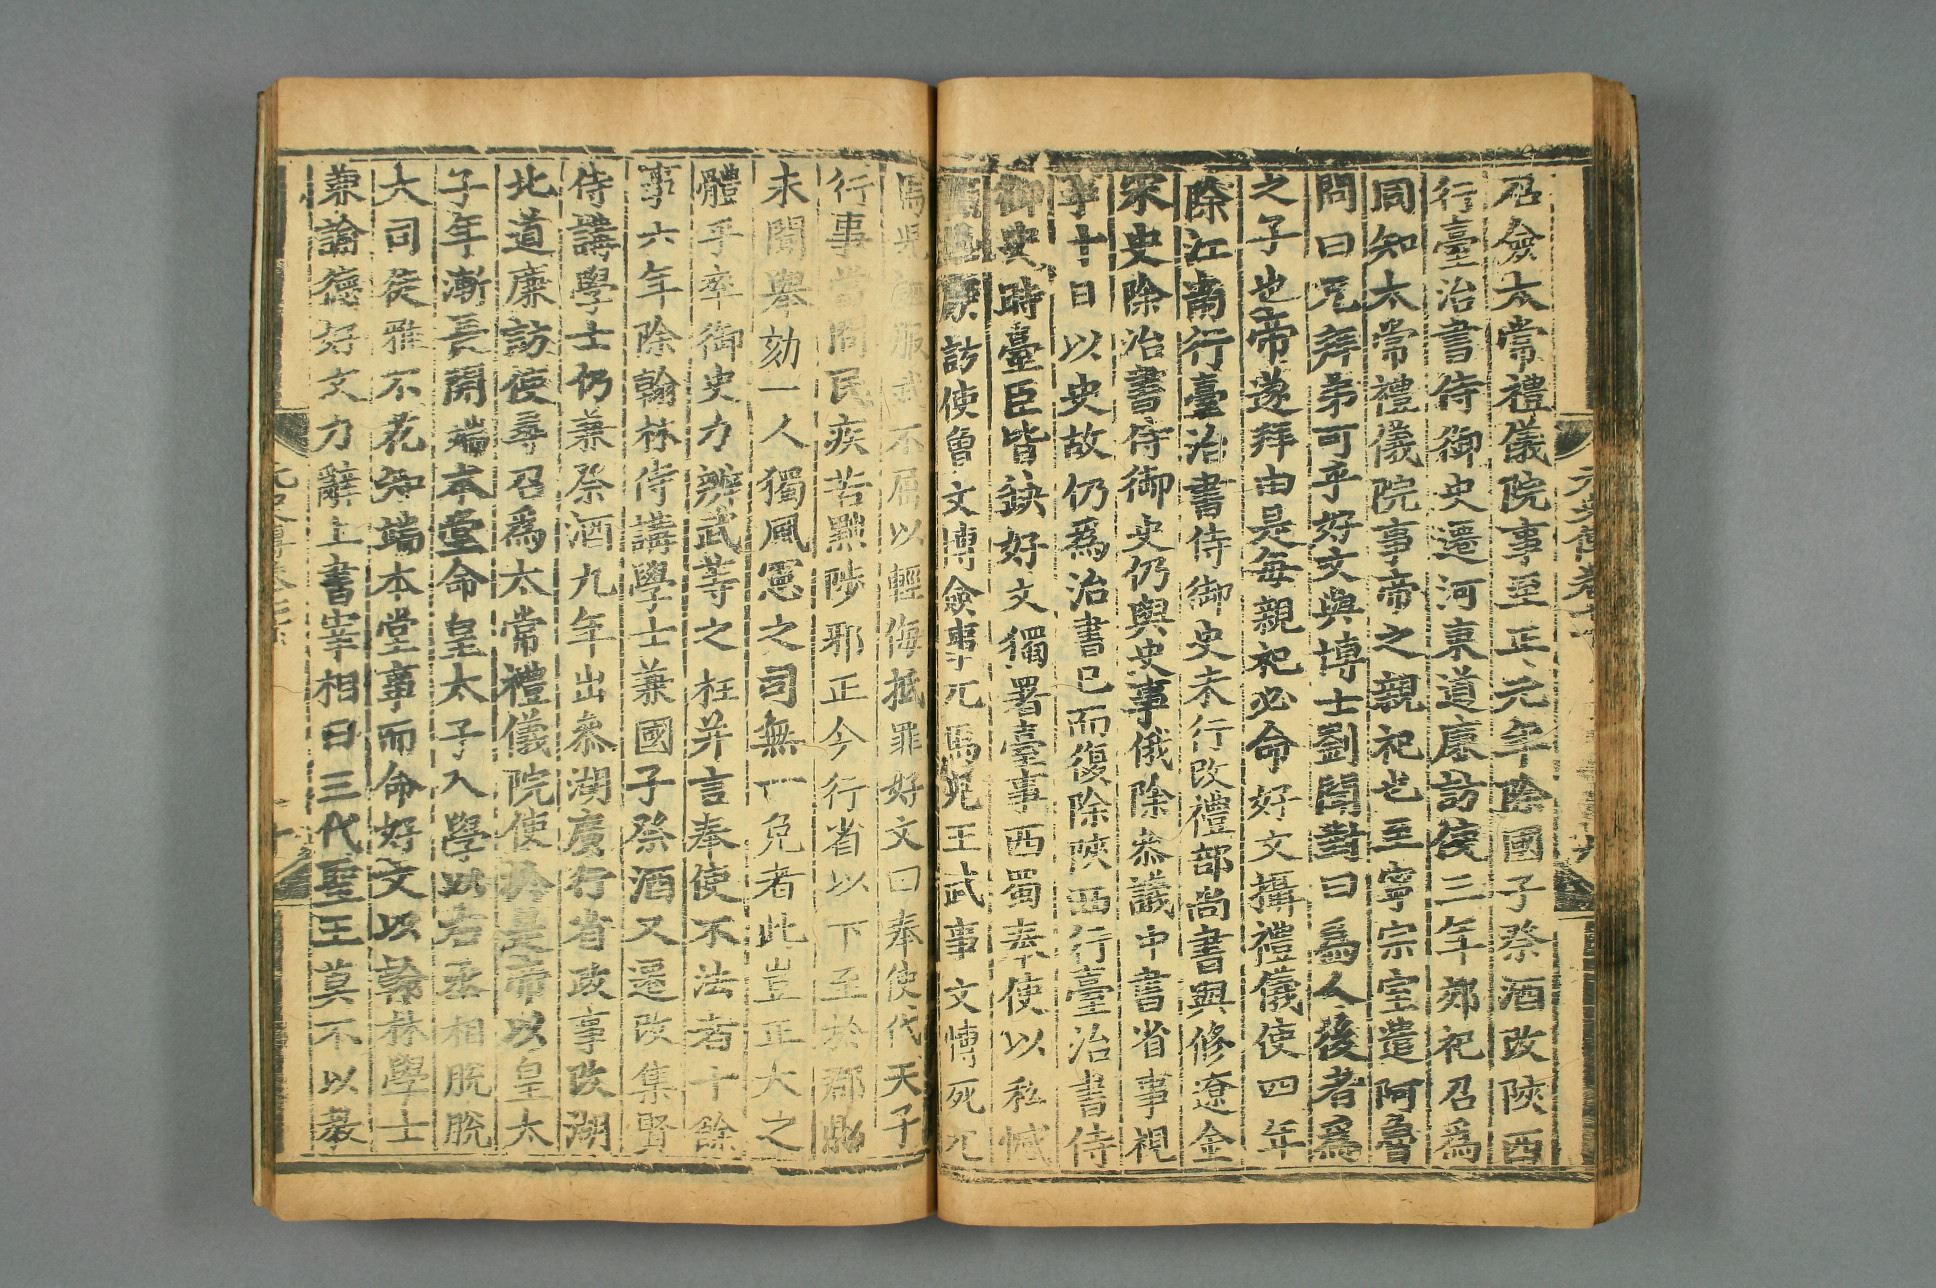 召僉太常禮儀院事至正元年除國子祭酒改陝西
行臺治書侍御史遷河東道廉訪使三年郊祀召爲
同知太常禮儀院事帝之親祀也至寧宗室遣阿魯
問曰兄拜弟可乎好文與博士劉聞對曰爲人後者爲
之子也帝遂拜由是每親祀必命好文攝禮儀使四年
除江南行臺治書侍御史未行改禮部尚書與修遼金
宋史除治書侍御史仍與史事俄除參議中書省事視
事十日以史故仍爲治書已而復除陝西行臺治書侍
御史時臺臣皆缺好文獨署臺事西蜀奉使以私憾
廉訪使曾文博僉事兀馬兒王武事文博死兀
馬兒誣服武不屈以輕侮抵罪好文曰奉使代天子
行事當問民疾苦黜陟邪正今行省以下至於郡縣
未聞舉劾一人獨風憲之司無一免者此豈正大之
體乎率御史力辨武等之枉并言奉使不法者十餘
事六年除翰林侍講學士兼國子祭酒又遷改集賢
侍講學士仍兼祭酒九年出參湖廣行省政事改湖
北道廉訪使尋召爲太常禮儀院使於是帝以皇太
子年漸長開端本堂命皇太子入學以右丞相脫脫
大司徒雅不花知端本堂事而命好文以翰林學士
兼諭德好文力辭上書宰相曰三代聖王莫不以教